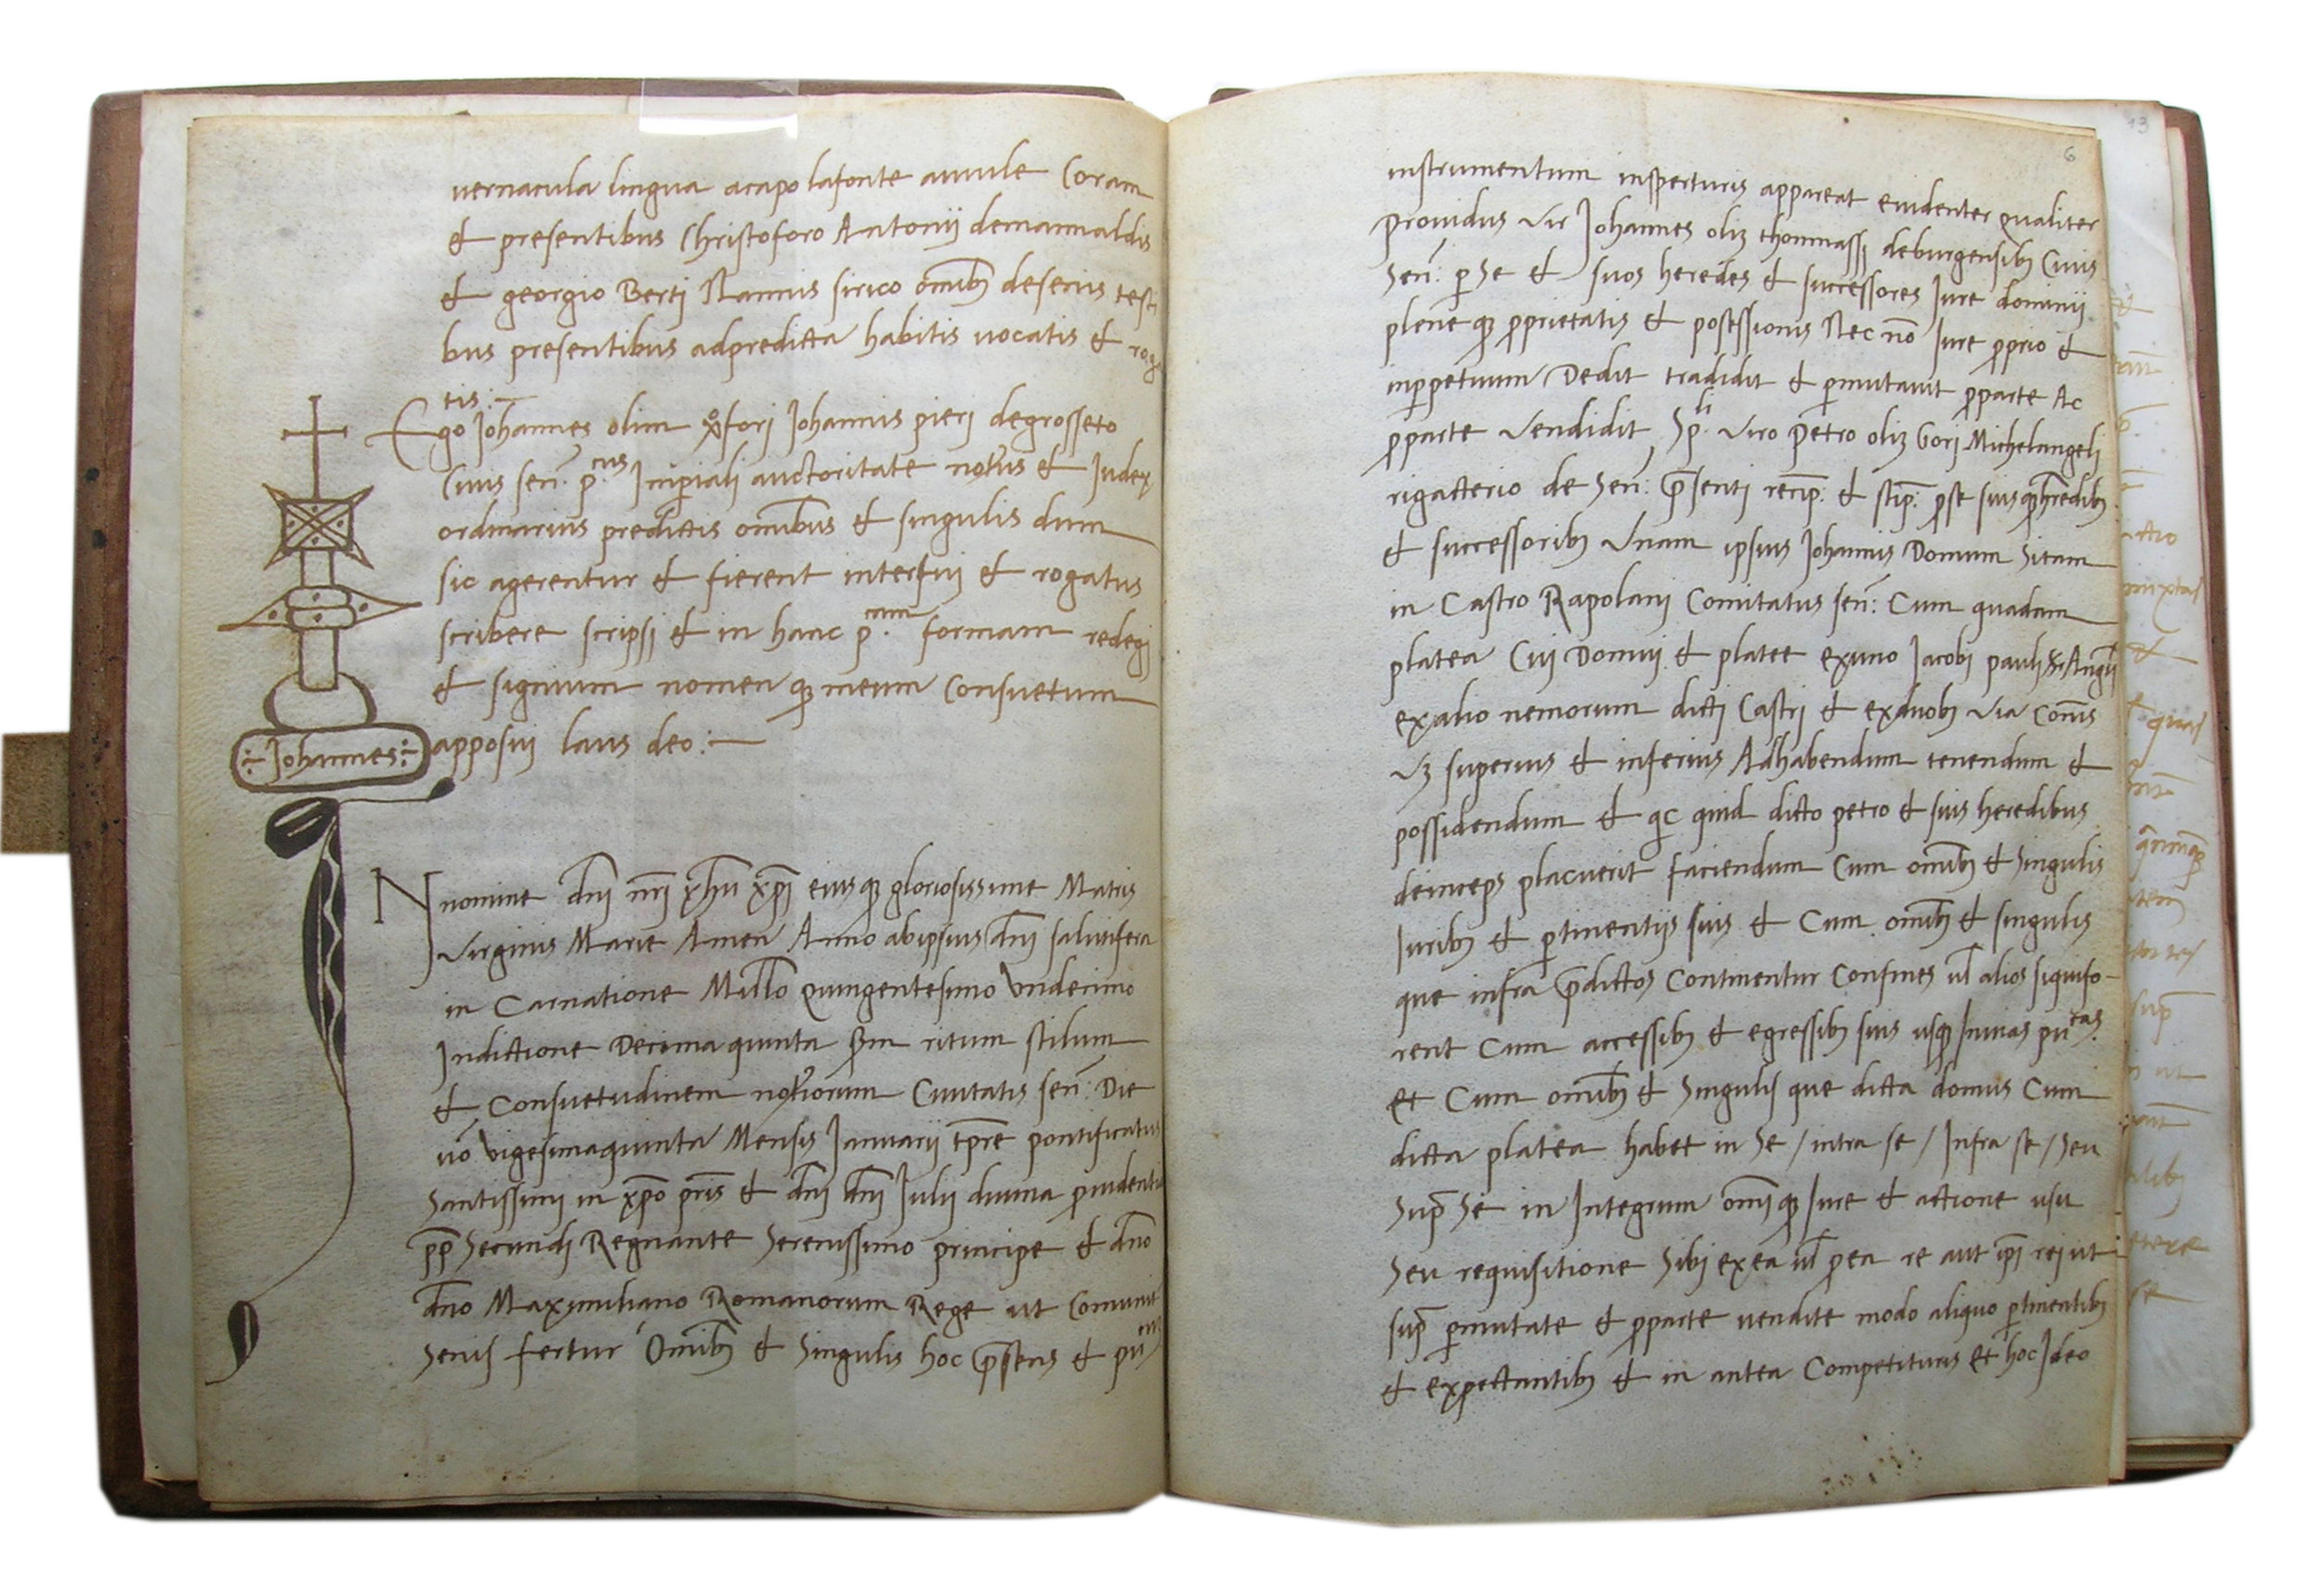 vernacula lingua acapo lafonte amule Coram
& presentibus Christoforo Antonij demannaldis
& georgio Berti Nannis sirico omibȝ desenis testi
bus presentibus adpredicta habitis vocatis & roga
tis:—
Ego Johannes olim xp̄ofori Johannis pieri degrosseto
Civis sen̄: p.cus Imp̄iali auctoritate not̄us & Judex
ordinarius predictis omībus & singulis dum
sic agerentur & fierent interfui & rogatus
scribere scripsi & in hanc p.cam formam redegi
& signum nomen qȝ meum Consuetum
apposui laus deo:—
:Johannes:
IN nomine dn̄i nr̄i yh̄u xp̄i eiusqȝ gloriosissime Matris
Virginis Marie Amen Anno abipsius dn̄i salutifera
in Carnatione Mill̄o Quingentesimo Vndecimo
Indictione Decima quinta s̄m ritum stilum
& Consuetudinem not̄iorum Civitatis sen̄: Die
vō Vigesimaquinta Mensis Januarij tp̄re pontificatus
Santissimi in xp̄o pr̄is & dn̄i dn̄i Julij divina p̄videntia
pp̄ Secundi Regnante Serenissimo principe & dn̄o
dn̄o Maximiliano Romanorum Rege ut Comunit
Senis fertur Omībȝ & Singulis hoc p̄sens & pu.cum
6
13
instrumentum inspecturis appareat evidenter qualiter
providus vir Johannes oliȝ thommassj deburgensibȝ Civis
Sen̄: p̄ Se & suos heredes & successores Jure dominij
plene qȝ p̄prietatis & possessionis Nec nō Jure p̄prio &
inp̄petuum Dedit tradidit & p̄mutavit p̄parte Ac
p̄parte Vendidit Sp.li Viro Petro oliȝ Gori Michelangeli
rigatterio de Sen̄: p̄senti recip: & stip: p̄se suisqȝ heredibȝ
& successoribȝ Vnam ipsius Johannis Domum Sitam
in Castro Rapolani Comitatus sen̄: Cum quadam
platea Cui Domui & platee exuno Jacobi pauli & Angeli
exalio nemorum dicti Castri & exduobȝ Via Com̄is
Vȝ superius & inferius Adhabendum tenendum &
possidendum & qc quid dicto petro & suis heredibus
deinceps placuerit faciendum Cum omībȝ & Singulis
Juribȝ & p̄tinentijs suis & Cum omībȝ & singulis
que infra p̄dictos Continentur Confines ul̄ alios siquifo-
rent Cum accessibȝ & egressibȝ suis usqȝ Invias pu.cas.
et Cum omībȝ & Singulis que dicta domus Cum
dicta platea habet in Se / intra se / Infra se / Seu
Sup̄ Se in Integrum omīqȝ Jure & actione usu
Seu requisitione Sibi exea ul̄ p̄ea re aut ip̄i rei ut
sup̄ p̄mutate & p̄parte vendite modo aliquo p̄tinentibȝ
& expectantibȝ & in antea Competituris et hoc Ideo